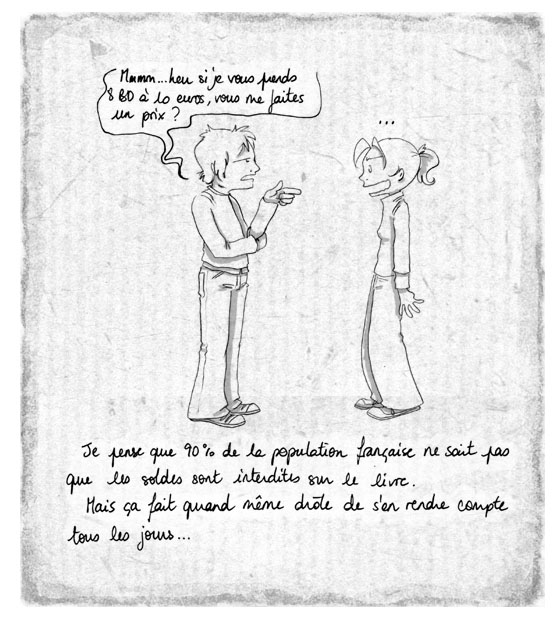 Mmmm...heu si je vous prends
8 BD à 10 euros, vous me faites
un prix ?
...
Je pense que 90% de la population française ne sait pas
que les soldes sont interdites sur le livre.
Mais ça fait quand même drôle de s'en rendre compte
tous les jours...